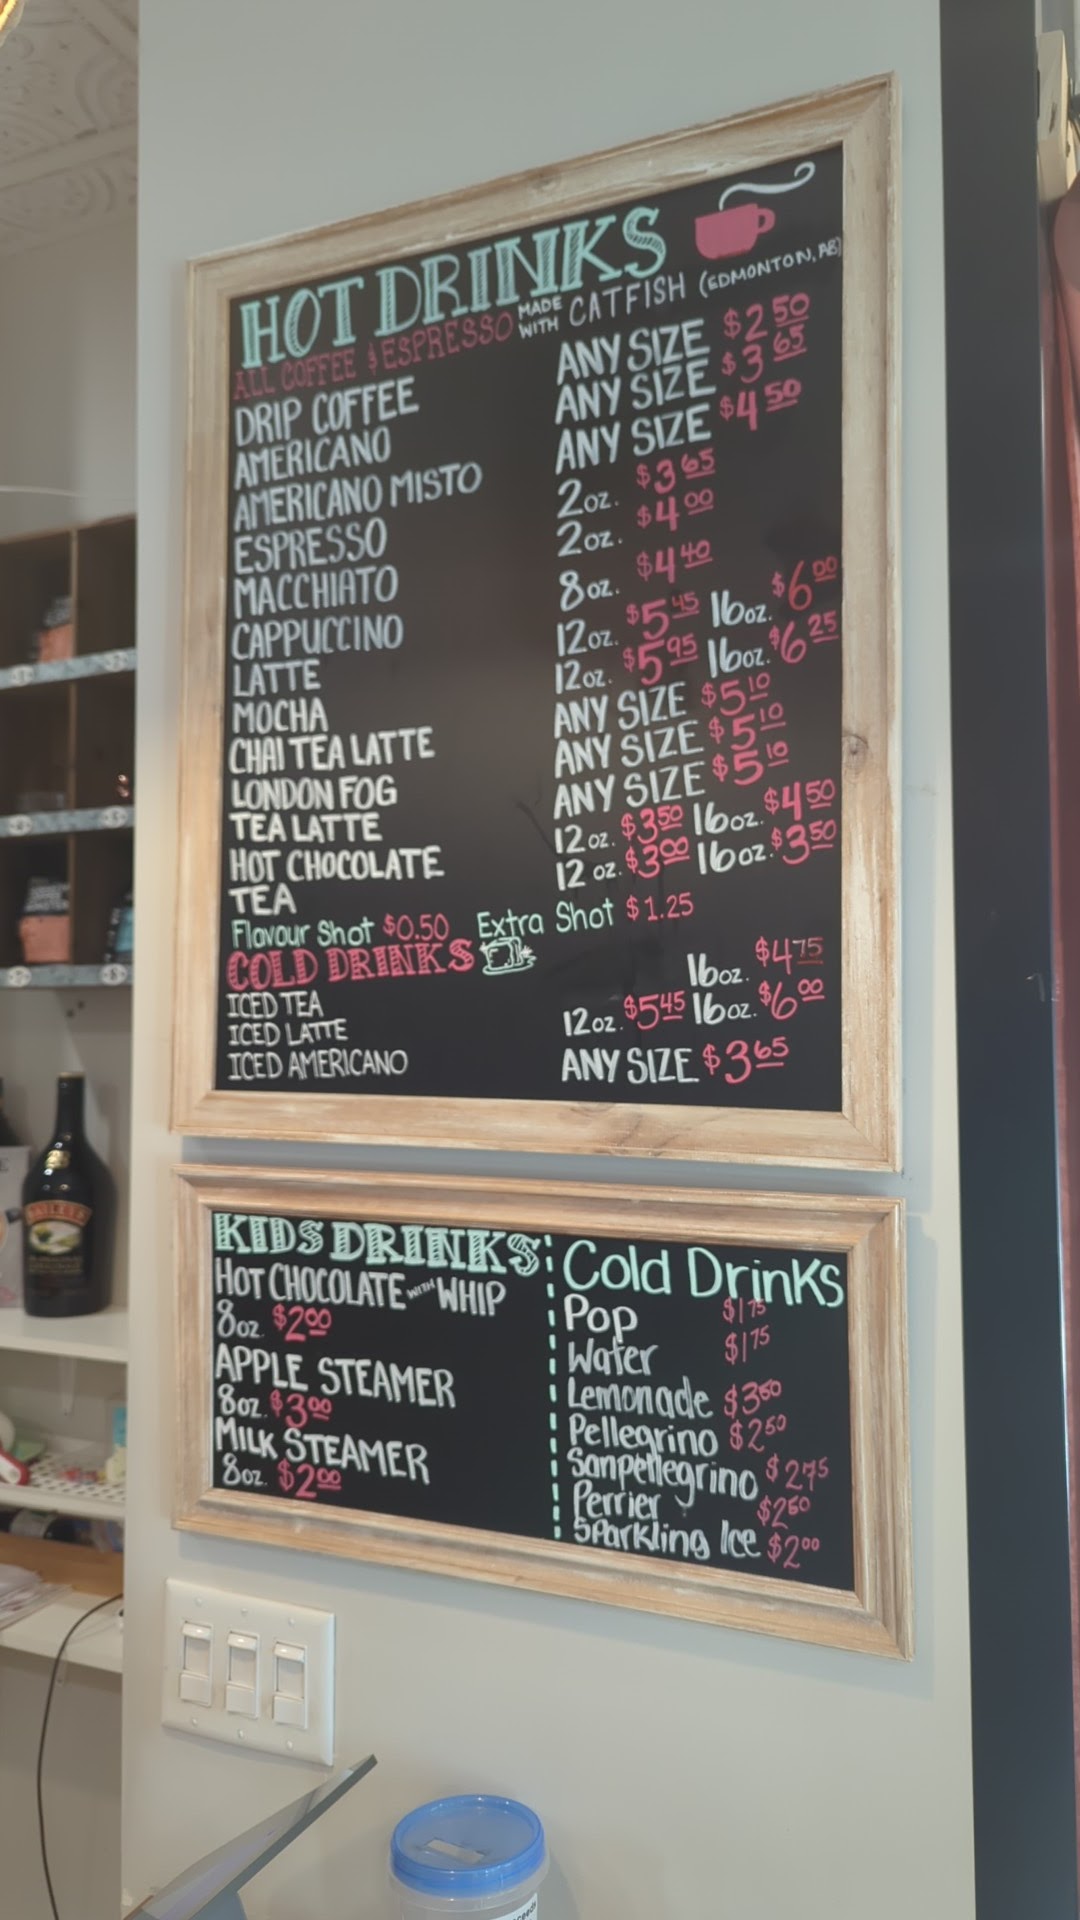 HOT DRINKS
ALL COFFEE & ESPRESSO MADE WITH CATFISH (EDMONTON, AB)
DRIP COFFEE ANY SIZE $2.50
AMERICANO ANY SIZE $3.65
AMERICANO MISTO ANY SIZE $4.50
ESPRESSO 2oz. $3.65
MACCHIATO 2oz. $4.00
CAPPUCCINO 8oz. $4.40
LATTE 12oz. $5.45 16oz. $6.00
MOCHA 12oz. $5.95 16oz. $6.25
CHAI TEA LATTE ANY SIZE $5.10
LONDON FOG ANY SIZE $5.10
TEA LATTE ANY SIZE $5.10
HOT CHOCOLATE 12oz. $3.50 16oz. $4.50
TEA 12 oz. $3.00 16oz. $3.50
Flavour Shot $0.50 Extra Shot $1.25
COLD DRINKS
ICED TEA 16oz. $4.75
ICED LATTE 12oz. $5.45 16oz. $6.00
ICED AMERICANO ANY SIZE $3.65
KIDS DRINKS
HOT CHOCOLATE WITH WHIP
8oz. $2.00
APPLE STEAMER
8oz. $3.00
MILK STEAMER
8oz. $2.00
Cold Drinks
Pop $1.75
Water $1.75
Lemonade $3.50
Pellegrino $2.50
Sanpellegrino $2.75
Perrier $2.50
Sparkling Ice $2.00
BAILEYS